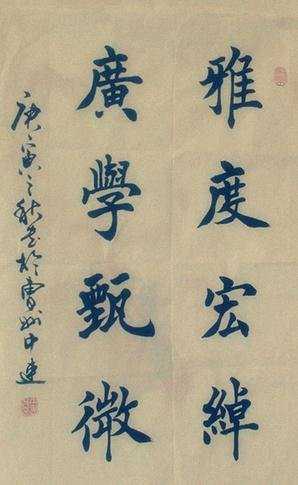 雅度宏綽
廣學甄微
庚寅之秋書於賈州中連